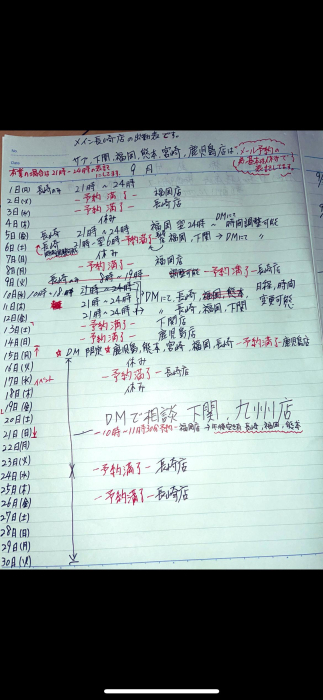 メイン長崎店の出勤表です。
サブ、下関、福岡、熊本、宮崎、鹿児島店は"メール予約の
為、基本は休みで
表示してます。
本業の場合は21時~24時の表示
にしてます。
9月
1日(月) 長崎のみ 21時~24時
2日(火) -予約満了- 福岡店
3日(水) -予約満了- 長崎店
4日(木) 休み
5日(金) 長崎 21時~24時 福岡 翌24時~ DMにて 時間調整可能
6日(土) 長崎 21時~翌6時 -予約満了- 福岡、下関→DMにて 〃
7日(日) 休み
8日(月) -予約満了- 福岡店
9日(火) 長崎のみ 8時~19時 調整可能 -予約満了- 長崎店
10日(水) 10時~18時 21時~24時
11日(木) 21時~24時 DMにて、長崎、福岡、熊本、日程、時間
12日(金) 21時~24時 〃 長崎、福岡、下関 変更可能
13日(土) -予約満了- 下関店
14日(日) -予約満了- 鹿児島店
15日(月) ☆DM限定☆鹿児島、熊本、宮崎、福岡、長崎 -予約満了- 鹿児島店
16日(火) 休み
17日(水) イベント -予約満了- 長崎店
18日(木) 休み
19日(金)
20日(土) DMで相談 下関、九州店
21日(日) -10時~11時30分予約- 福岡店
22日(月)
23日(火) -予約満了- 長崎店
24日(水)
25日(木) -予約満了- 長崎店
26日(金)
27日(土)
28日(日)
29日(月)
30日(火)